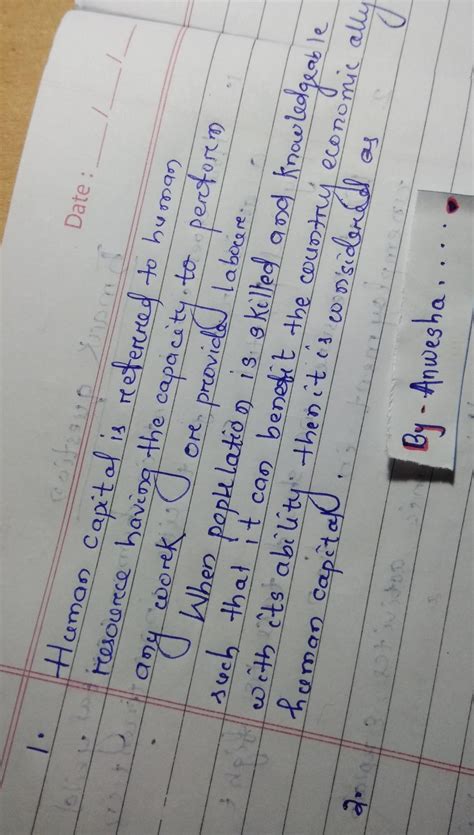 Date: __/__/__
1. Human capital is referred to human
resource having the capacity to perform
any work or provide labour.
When population is skilled and knowledgeable
such that it can benefit the country economically
with its ability then it is considered as
human capital.
2.
By - Anwesha....